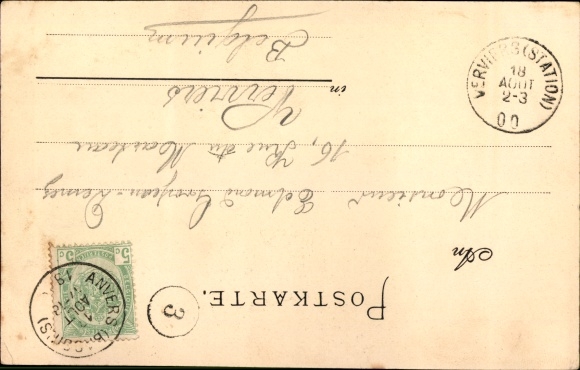 POSTKARTE.
3
5c 5c
ANVERS (BASSINS)
AOUT
18
An
Monsieur Edmond Grosjean-
16, Rue du Marteau
in Verviers
Belgium
VERVIERS (STATION)
18
AOUT
2-3
00